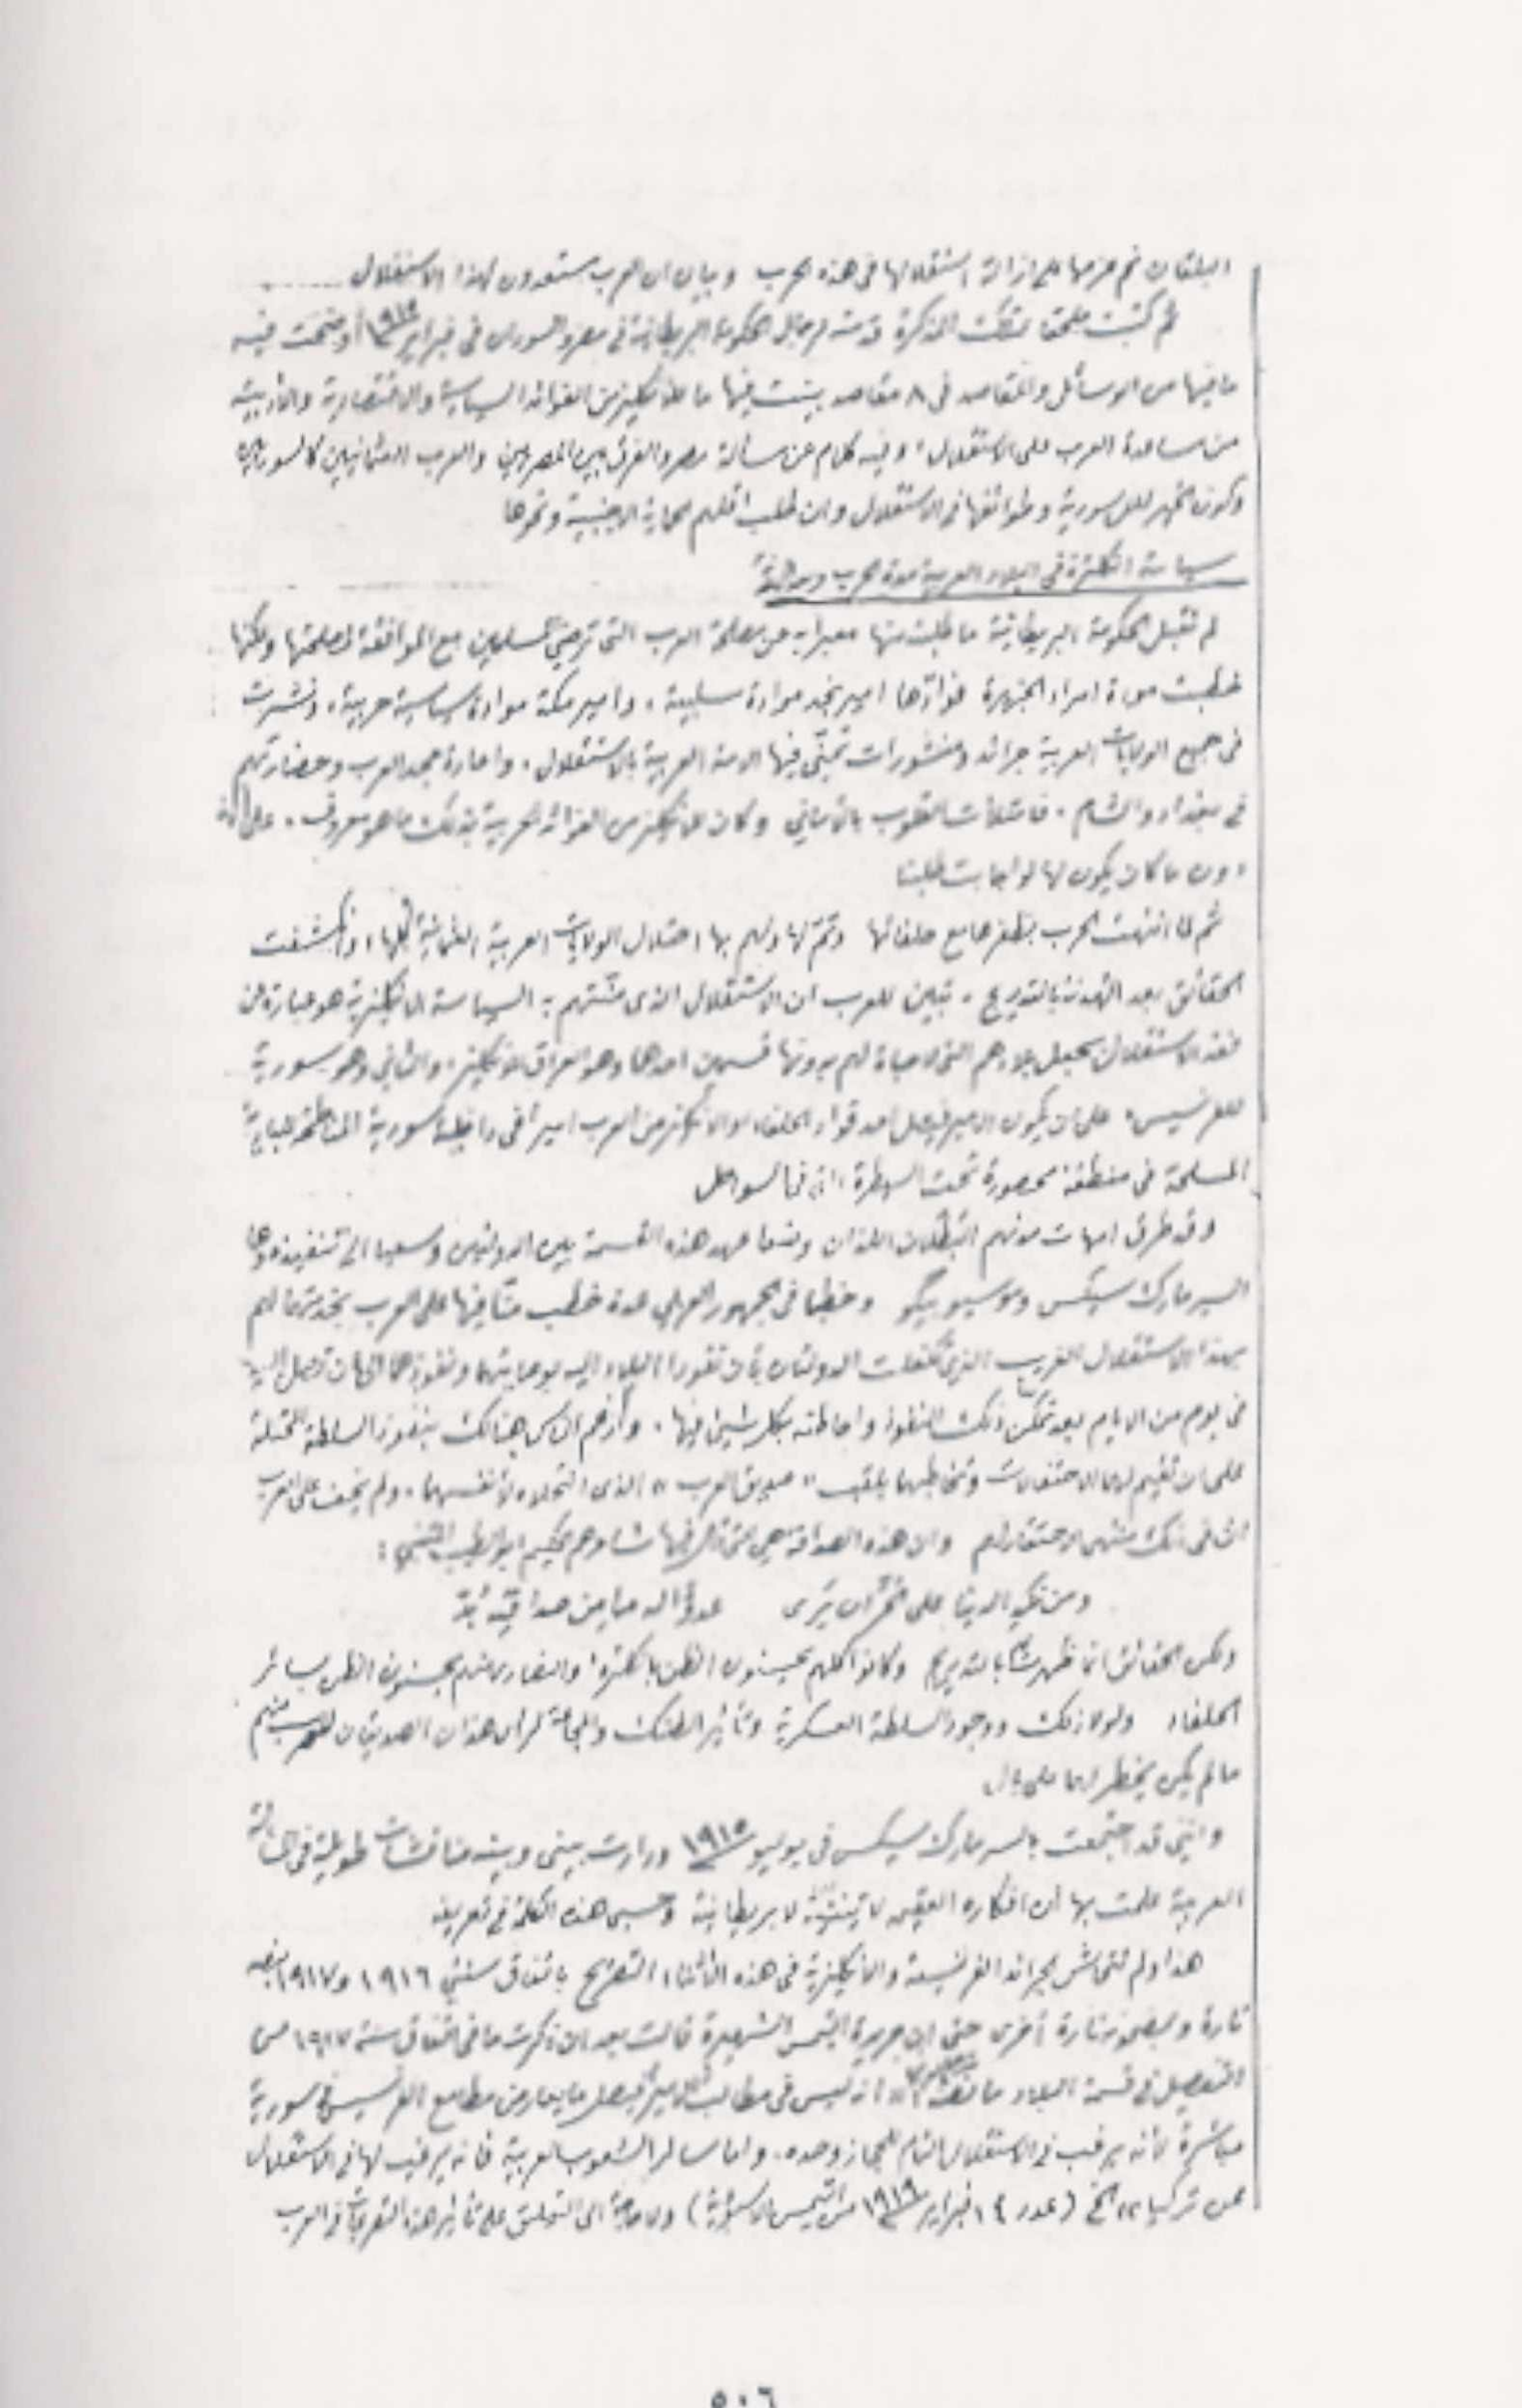 البلقان ثم عزمها على ازالة استقلالها في هذه الحرب وبيان ان العرب مستعدون لهذا الاستقلال ......
ثم كتبت ملحقا لتلك المذكرة قدمته لرجال الحكومة البريطانية في مصر والسودان في فبراير أوضحت فيه
ما فيها من الوسائل والمقاصد في ٨ مقاصد بينت فيها ما للانكليز من الفوائد السياسية والاقتصادية والأدبية
من مساعدة العرب على الاستقلال، وفيه كلام عن مسألة مصر والفرق بين المصريين والعرب العثمانيين كالسوريين
وكون الخير لكل سورية وطوائفها في الاستقلال وان طلب اقلهم الحماية الاجنبية ونحوها
سياسة انكلترة في البلاد العربية مدة الحرب
لم تقبل الحكومة البريطانية ما طلبت منها معبرا به عن مصلحة العرب التي ترضي المسلمين مع الموافقة لمصلحتها ولكنها
خطبت مودة امراء الجزيرة فوادّها امير نجد موادة سلبية، وامير مكة موادة سياسية حربية، ونشرت
في جميع الولايات العربية جرائد ومنشورات تمنّي فيها الامة العربية بالاستقلال، واعادة مجد العرب وحضارتهم
في بغداد والشام، فامتلأت القلوب بالأماني وكان للانكليز من الفوائد الحربية بذلك ما هو معروف، على انه
دون ما كان يكون لها لو اجابت طلبنا
ثم لما انتهت الحرب بظفرها مع حلفائها وتم لها ولهم بها احتلال الولايات العربية العثمانية كلها، وانكشفت
الحقائق بعد الهدنة بالتدريج، تبين للعرب ان الاستقلال الذي منّتهم به السياسة الانكليزية هو عبارة عن
فقد الاستقلال بجعل بلادهم التي لا حياة لهم بدونها قسمين احدها وهو العراق للانكليز، والثاني وهو سورية
للفرنسيس، على ان يكون الامير فيصل احد قواد الحلفاء او الانكليز من العرب اميرا في داخلية سورية
المسلحة في منطقة محصورة تحت السيطرة، اذ في السواحل
وقد طرق امهات مدنهم البطلان اللذان وضعا عهد هذه القسمة بين الدولتين وسعيا الى تنفيذه وهما
السير مارك سيكس وموسيو بيكو وخطبا في الجمهور العربي عدة خطب منّا فيها على العرب بخدمتهما لهم
بهذا الاستقلال الغريب الذي تكفلت الدولتان بأن تقودا البلاد اليه بوصايتهما ونفوذهما الى ان تصل اليه
في يوم من الايام بعد تمكن ذلك النفوذ واحاطته بكل شيء فيها، وأرغم الناس هنالك بنفوذ السلطة المحتلة
على ان تقيم لهما الاحتفالات وتخاطبهما بلقب «صديق العرب» الذي انتحلاه لأنفسهما، ولم يخف على العرب
ان في ذلك منتهى الاحتقار لهم وان هذه الصداقة هي التي قال فيها شاعرهم الحكيم ابو الطيب المتنبي:
ومن نكد الدنيا على الحر ان يَرى عدوّا له ما من صداقته بُدّ
ولكن الحقائق انما ظهرت بالتدريج وكانوا كلهم يحسنون الظن بانكلترة، والنصارى منهم يحسنون الظن بسائر
الحلفاء ولولا ذلك ووجود السلطة العسكرية وتأثير الضنك والمجاعة لرأى هذان الصديقان للعرب منهم
ما لم يكن يخطر لهما على بال
وانني قد اجتمعت بالسر مارك سيكس في يوليو ١٩١٥ ودارت بيني وبينه مناقشات طويلة في المسألة
العربية علمت بها أن افكاره العقيمة لاتينية لا بريطانية وحسبي هذه الكلمة في تعريفه
هذا ولم تتحاش الجرائد الفرنسية والانكليزية في هذه الأثناء التصريح باتفاق سنتي ١٩١٦ و١٩١٧
تارة وبمضمونه تارة أخرى حتى ان جريدة التيمس الشهيرة قالت بعد ان ذكرت ما في اتفاق سنة ١٩١٧ من
التفصيل في قسمة البلاد ما نصه: «انه ليس في مطالب الامير فيصل ما يعارض مطامع الفرنسيس في سورية
مباشرة لأنه يرغب في الاستقلال التام للحجاز وحده، واما سائر الشعوب العربية فانه يرغب لها في الاستقلال
عن تركيا» الخ (عدد ١٤ فبراير ١٩١٩ من التيمس) ولا حاجة الى التعليق على تأثير هذه التصريحات في العرب
٥٠٦